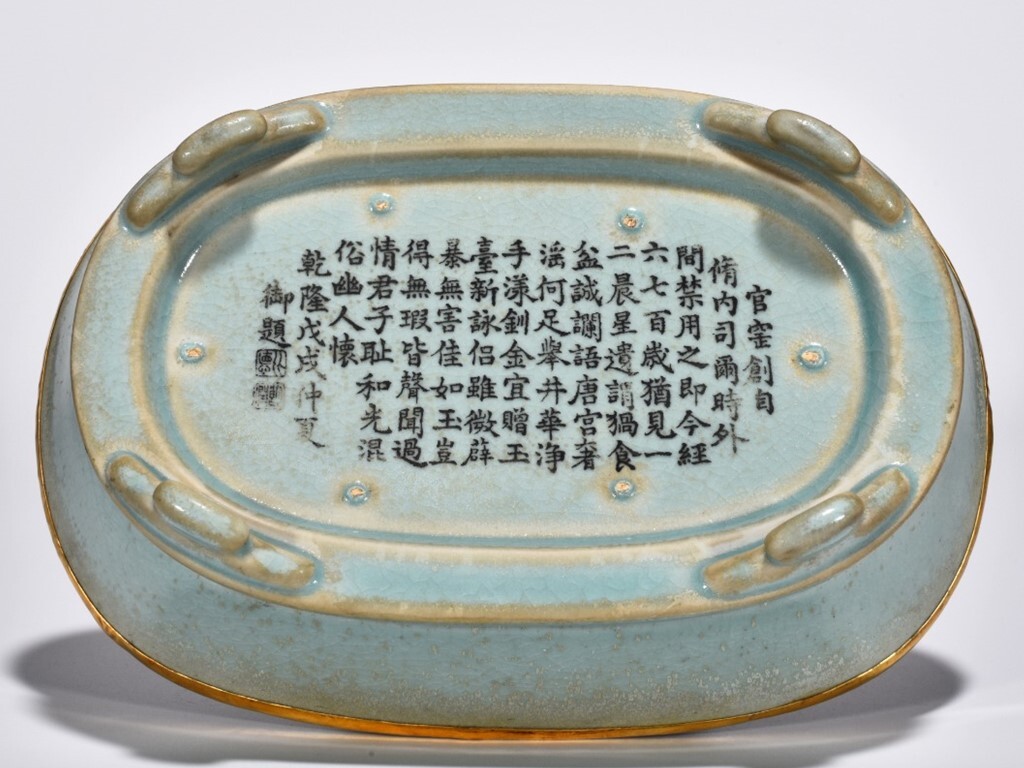 官窰創自
脩内司爾時外
間禁用之即今經
六七百歲猶見一
二晨星遺謂猧食
盆誠讕語唐宫奢
滛何足舉井華浄
手漾釧金宜贈玉
臺新詠侣雖微薜
暴無害佳如玉豈
得無瑕皆聲聞過
情君子耻和光混
俗幽人懷
乾隆戊戌仲夏
御題